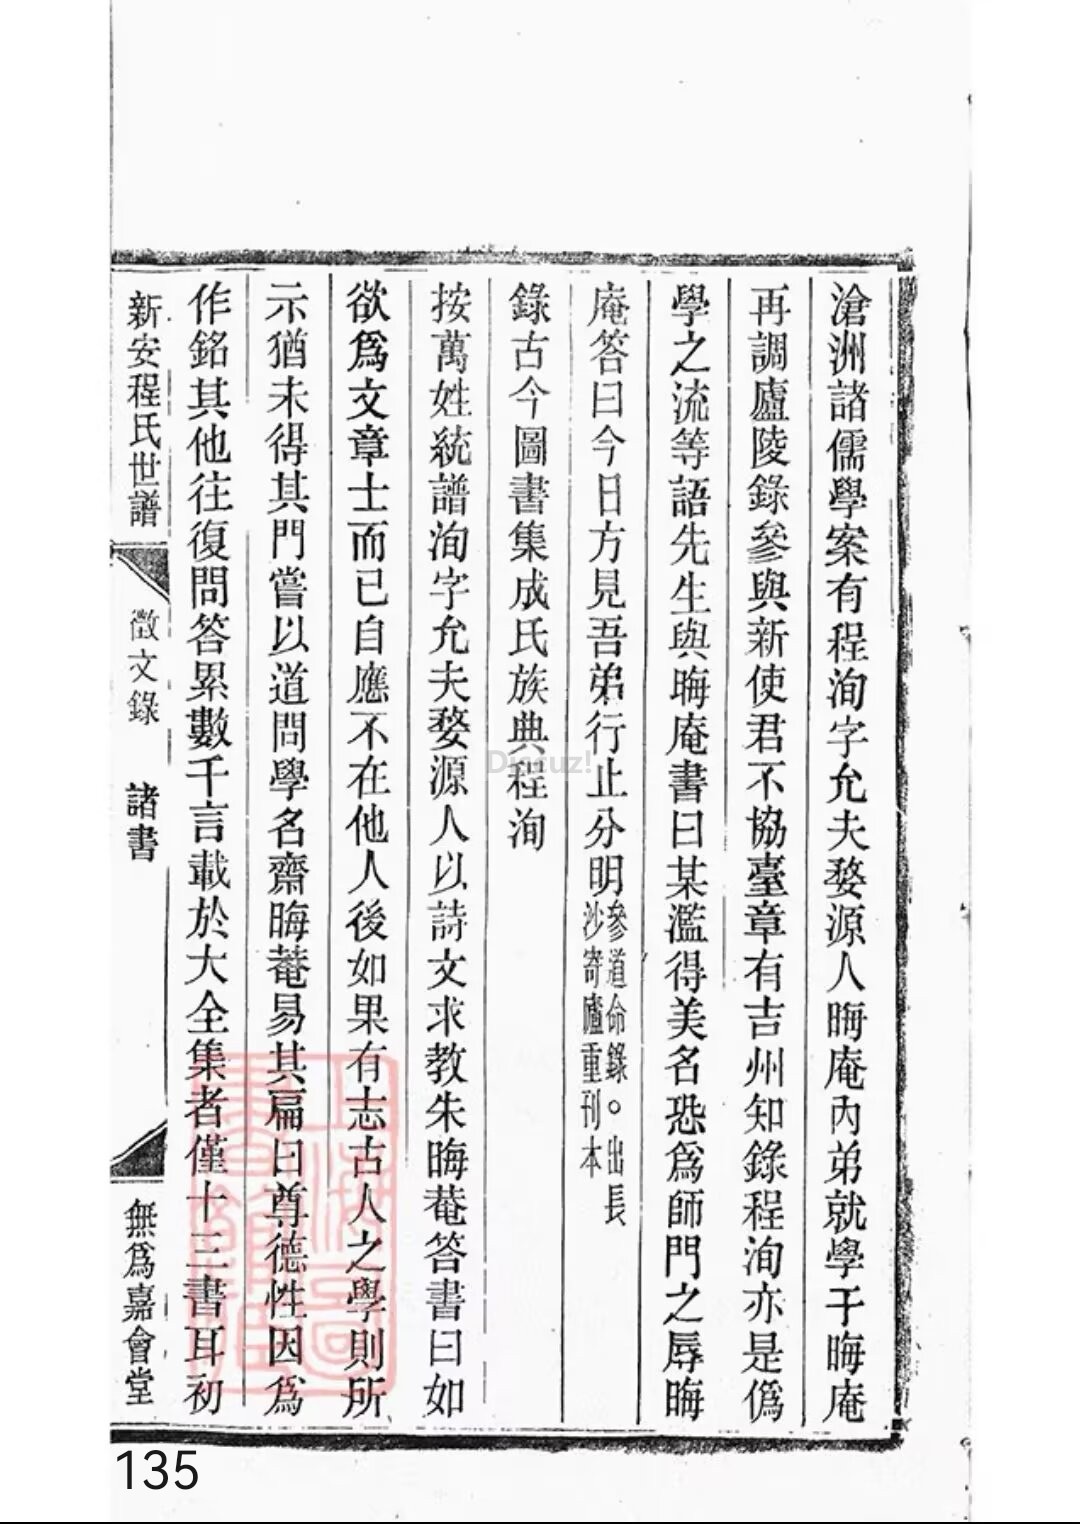 滄洲諸儒學案有程洵字允夫婺源人晦庵內弟就學于晦庵
再調廬陵錄參與新使君不協臺章有吉州知錄程洵亦是僞
學之流等語先生與晦庵書曰某濫得美名恐爲師門之辱晦
庵答曰今日方見吾弟行止分明
參道命錄。出長
沙寄廬重刊本
錄古今圖書集成氏族典程洵
按萬姓統譜洵字允夫婺源人以詩文求教朱晦菴答書曰如
欲爲文章士而已自應不在他人後如果有志古人之學則所
示猶未得其門嘗以道問學名齋晦菴易其扁曰尊德性因爲
作銘其他往復問答累數千言載於大全集者僅十三書耳初
新安程氏世譜
徵文錄
諸書
無爲嘉會堂
Discuz!
135